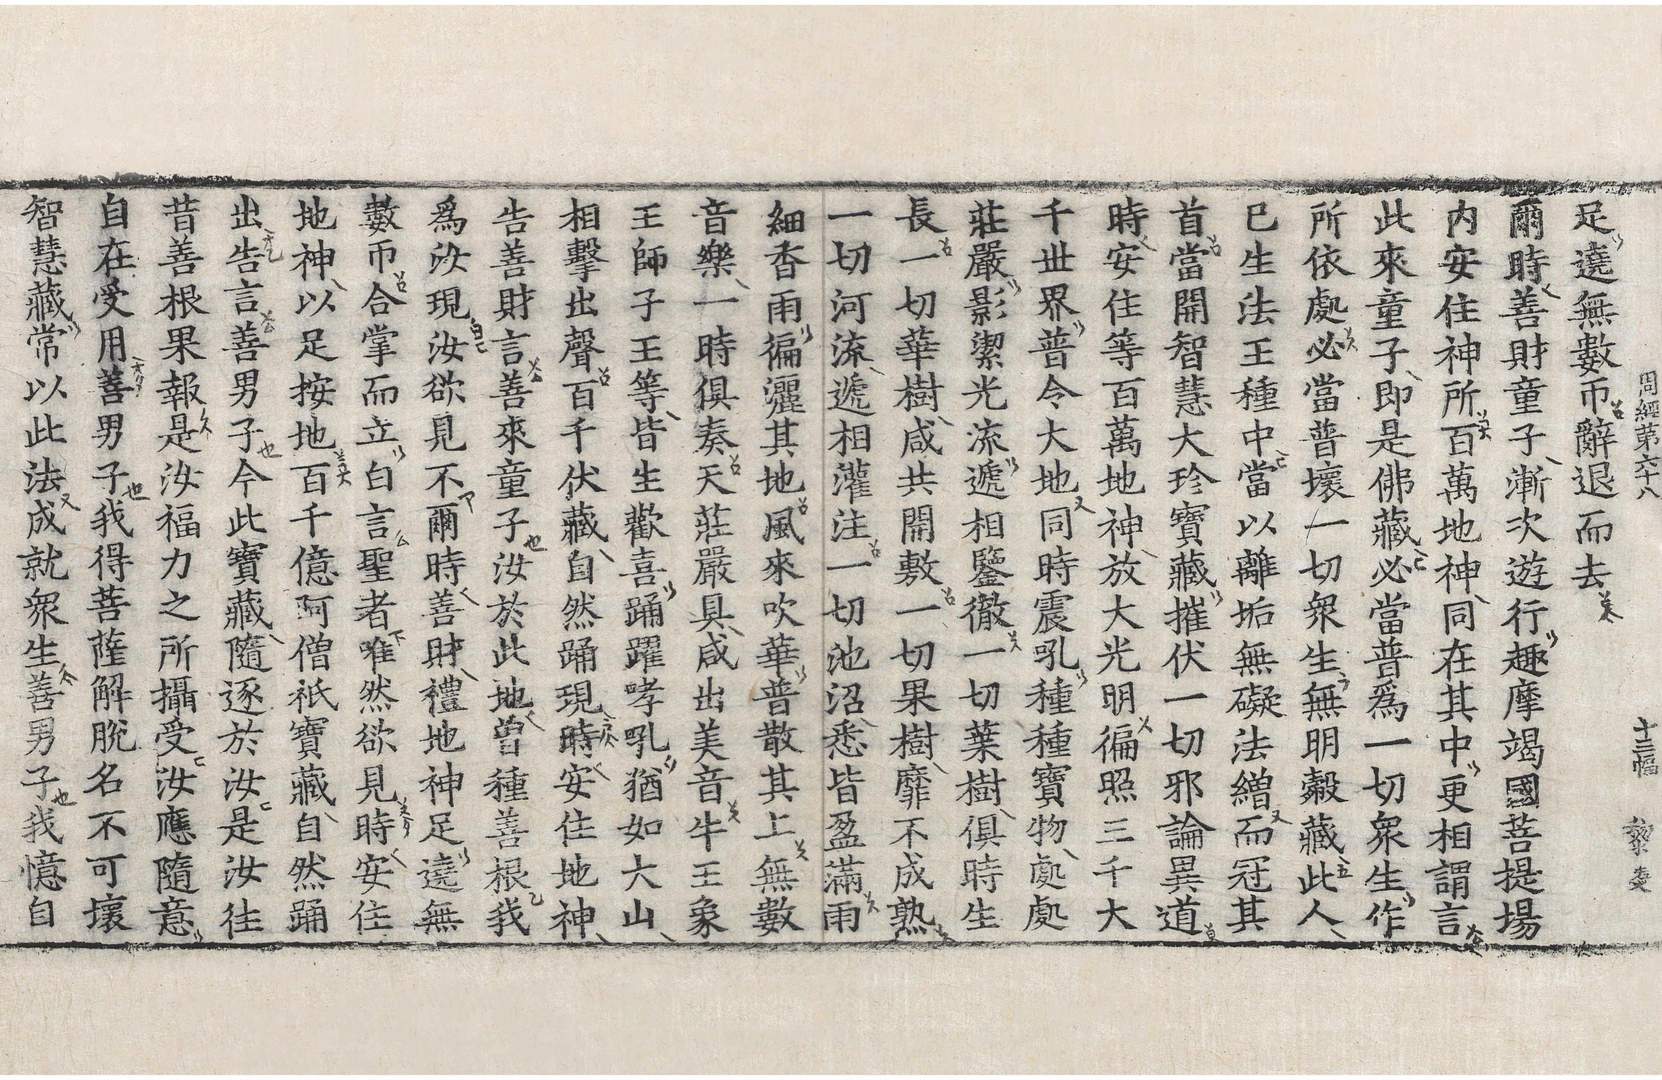 周經第六十八 十三幅
足遶無數帀辭退而去
爾時善財童子漸次遊行趣摩竭國菩提場
内安住神所百萬地神同在其中更相謂言
此來童子即是佛藏必當普爲一切眾生作
所依處必當普壞一切眾生無明㲉藏此人
已生法王種中當以離垢無礙法繒而冠其
首當開智慧大珍寶藏摧伏一切邪論異道
時安住等百萬地神放大光明徧照三千大
千世界普令大地同時震吼種種寶物處處
莊嚴影潔光流遞相鑒徹一切葉樹俱時生
長一切華樹咸共開敷一切果樹靡不成熟
一切河流遞相灌注一切池沼悉皆盈滿雨
細香雨徧灑其地風來吹華普散其上無數
音樂一時俱奏天莊嚴具咸出美音牛王象
王師子王等皆生歡喜踊躍哮吼猶如大山
相擊出聲百千伏藏自然踊現時安住地神
告善財言善來童子汝於此地曾種善根我
爲汝現汝欲見不爾時善財禮地神足遶無
數帀合掌而立白言聖者唯然欲見時安住
地神以足按地百千億阿僧祇寶藏自然踊
出告言善男子今此寶藏隨逐於汝是汝往
昔善根果報是汝福力之所攝受汝應隨意
自在受用善男子我得菩薩解脫名不可壞
智慧藏常以此法成就眾生善男子我憶自